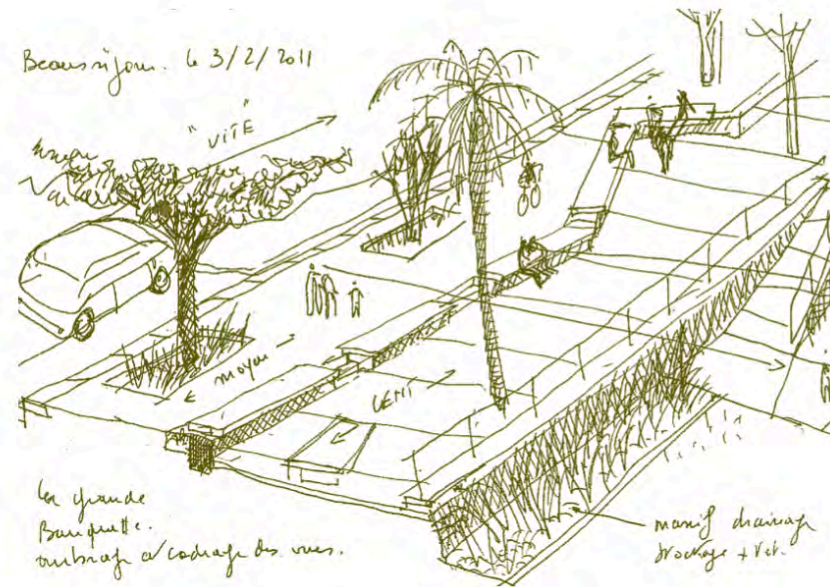 Beauséjour. le 3/2/2011
"VITE"
moyen
LENT
la grande
Banquette.
ombrage et cadrage des vues.
massif drainage
stockage +